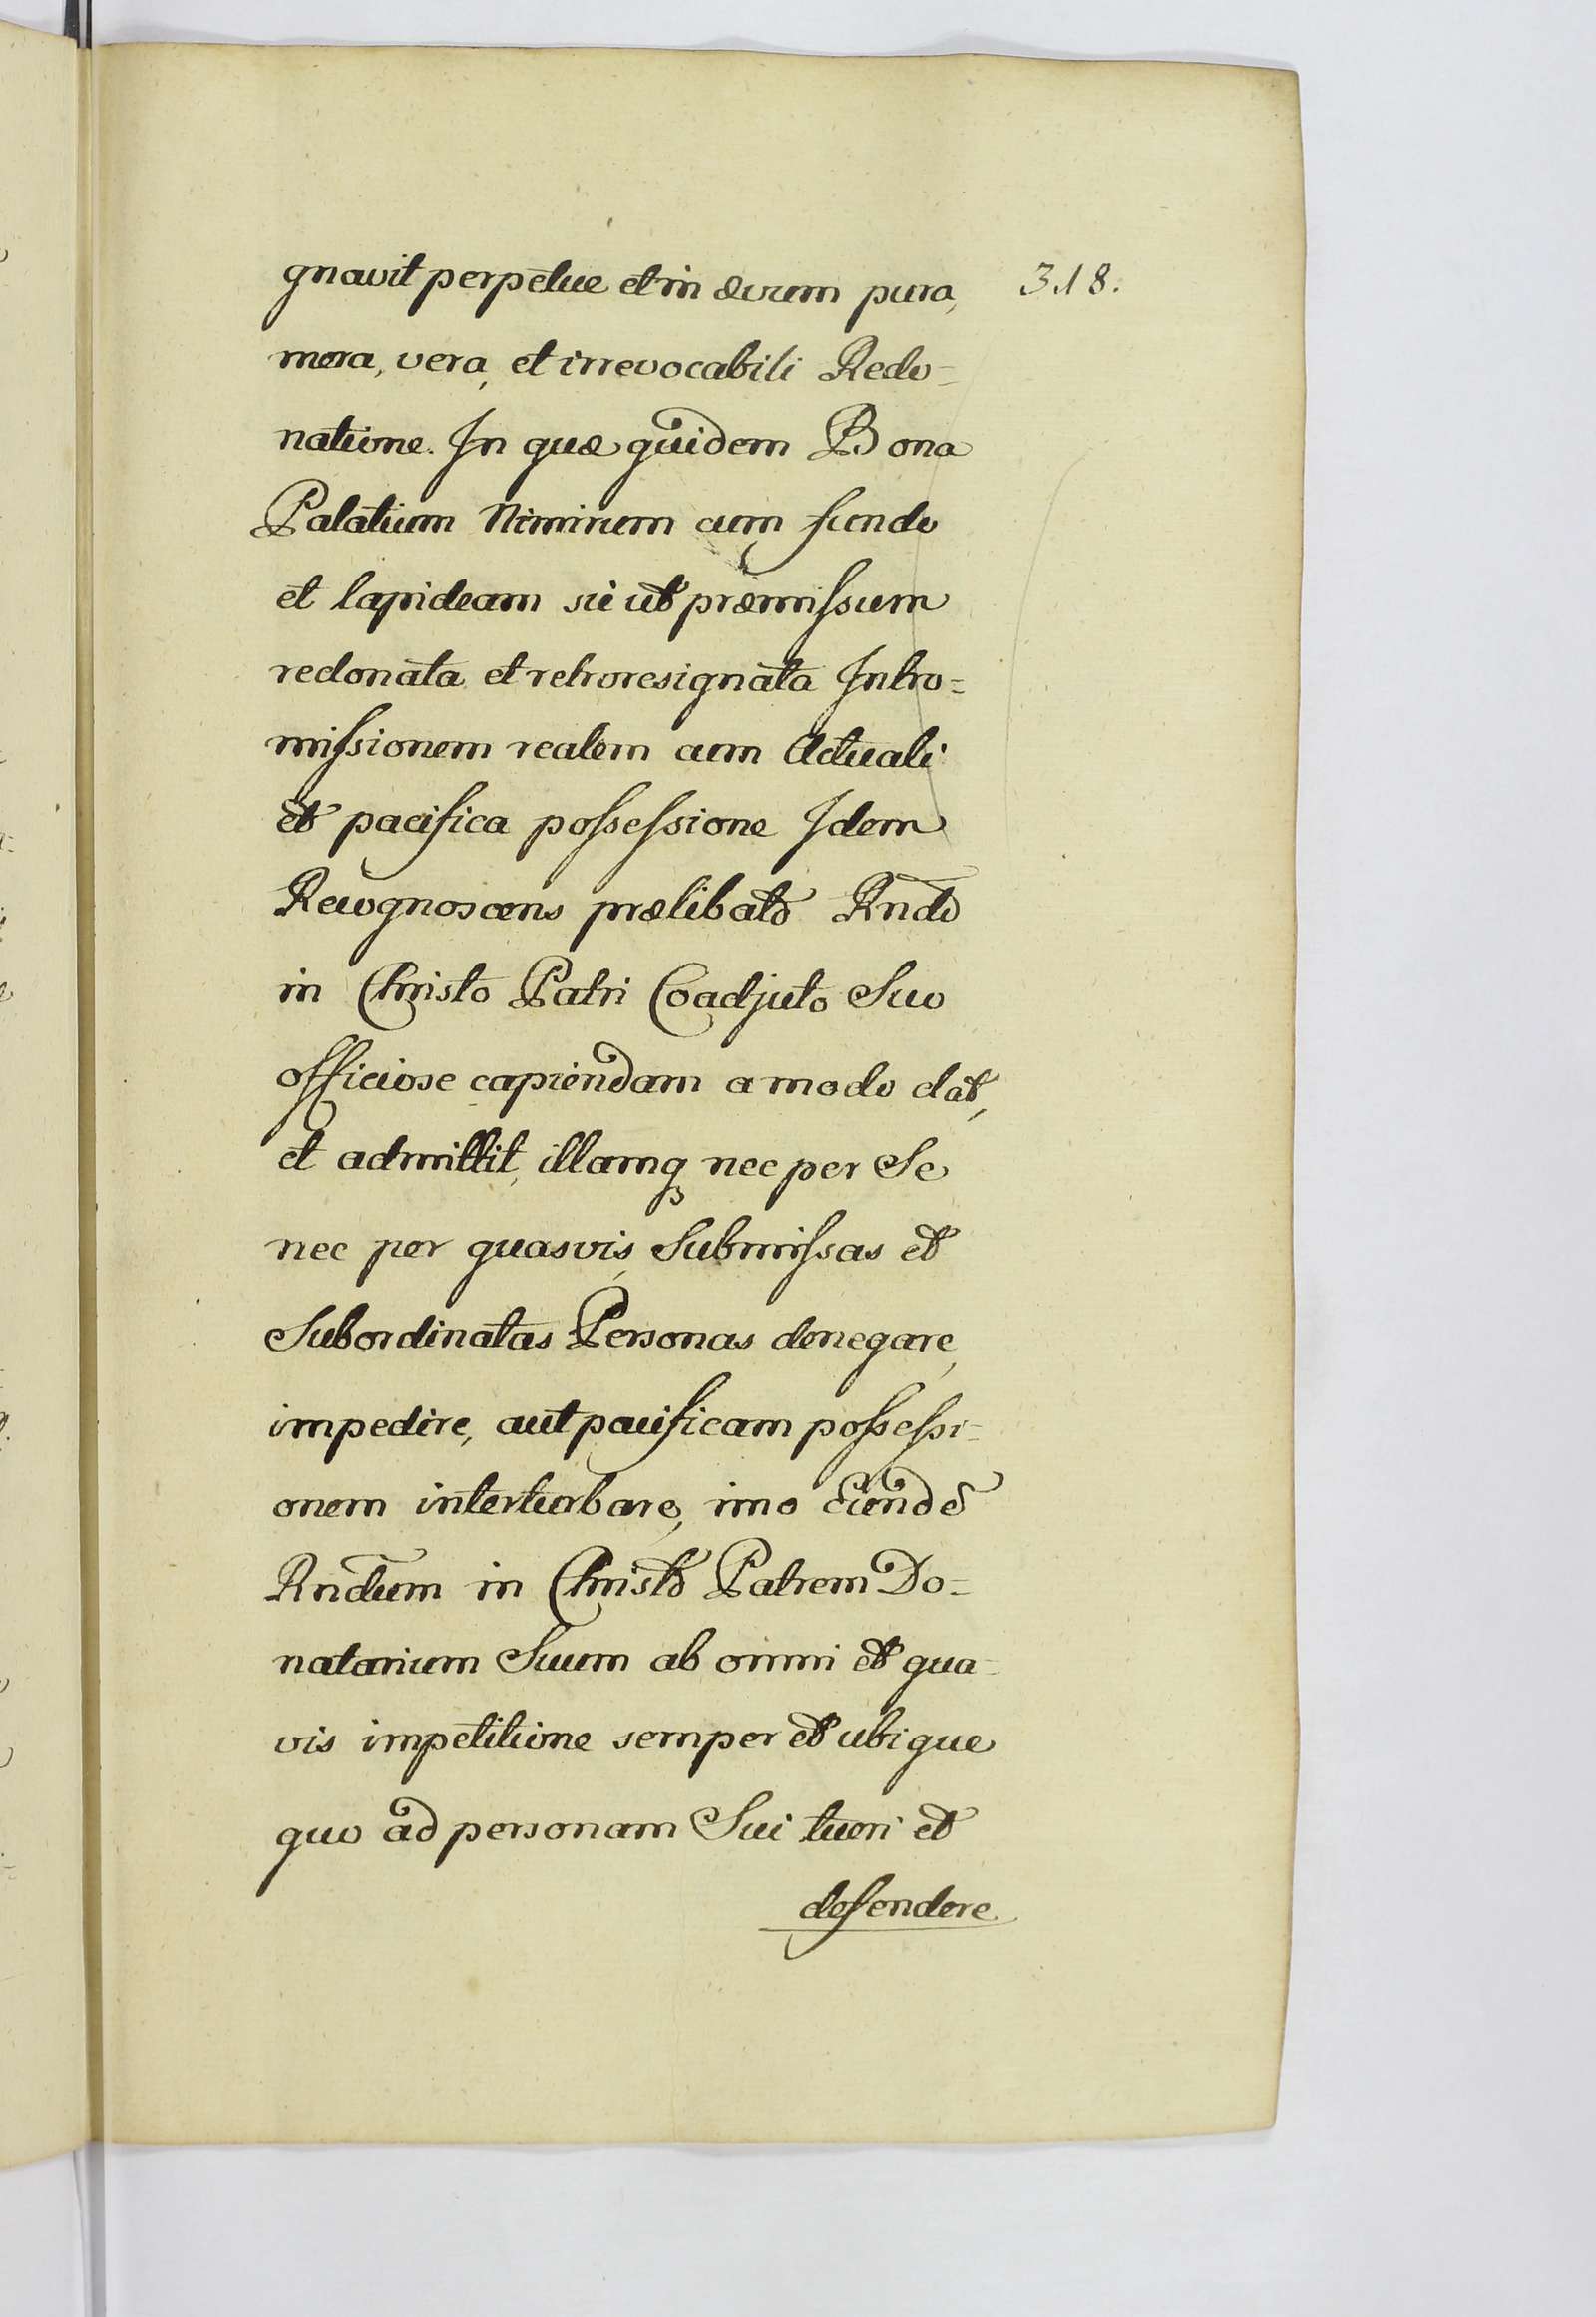 gnavit perpetue et in ævum pura, 318.
mera, vera, et irrevocabili Redo=
natione. In quæ quidem Bona
Palatium Nimirum cum fundo
et lapideam sic ut præmissum
redonata et retroresignata Intro=
missionem realem cum Actuali
et pacifica possessione Idem
Recognoscens prælibato Rndo
in Christo Patri Coadjuto Suo
officiose capiendam a modo dat,
et admittit, illamq nec per Se
nec per quasvis, Submissas et
Subordinatas Personas denegare,
impedire, aut pacificam possessi=
onem interturbare, imo Eundē
Rndum in Christo Patrem Do=
natarium Suum ab omni et qua=
vis impetitione semper et ubique
quo ad personam Sui tueri et
defendere